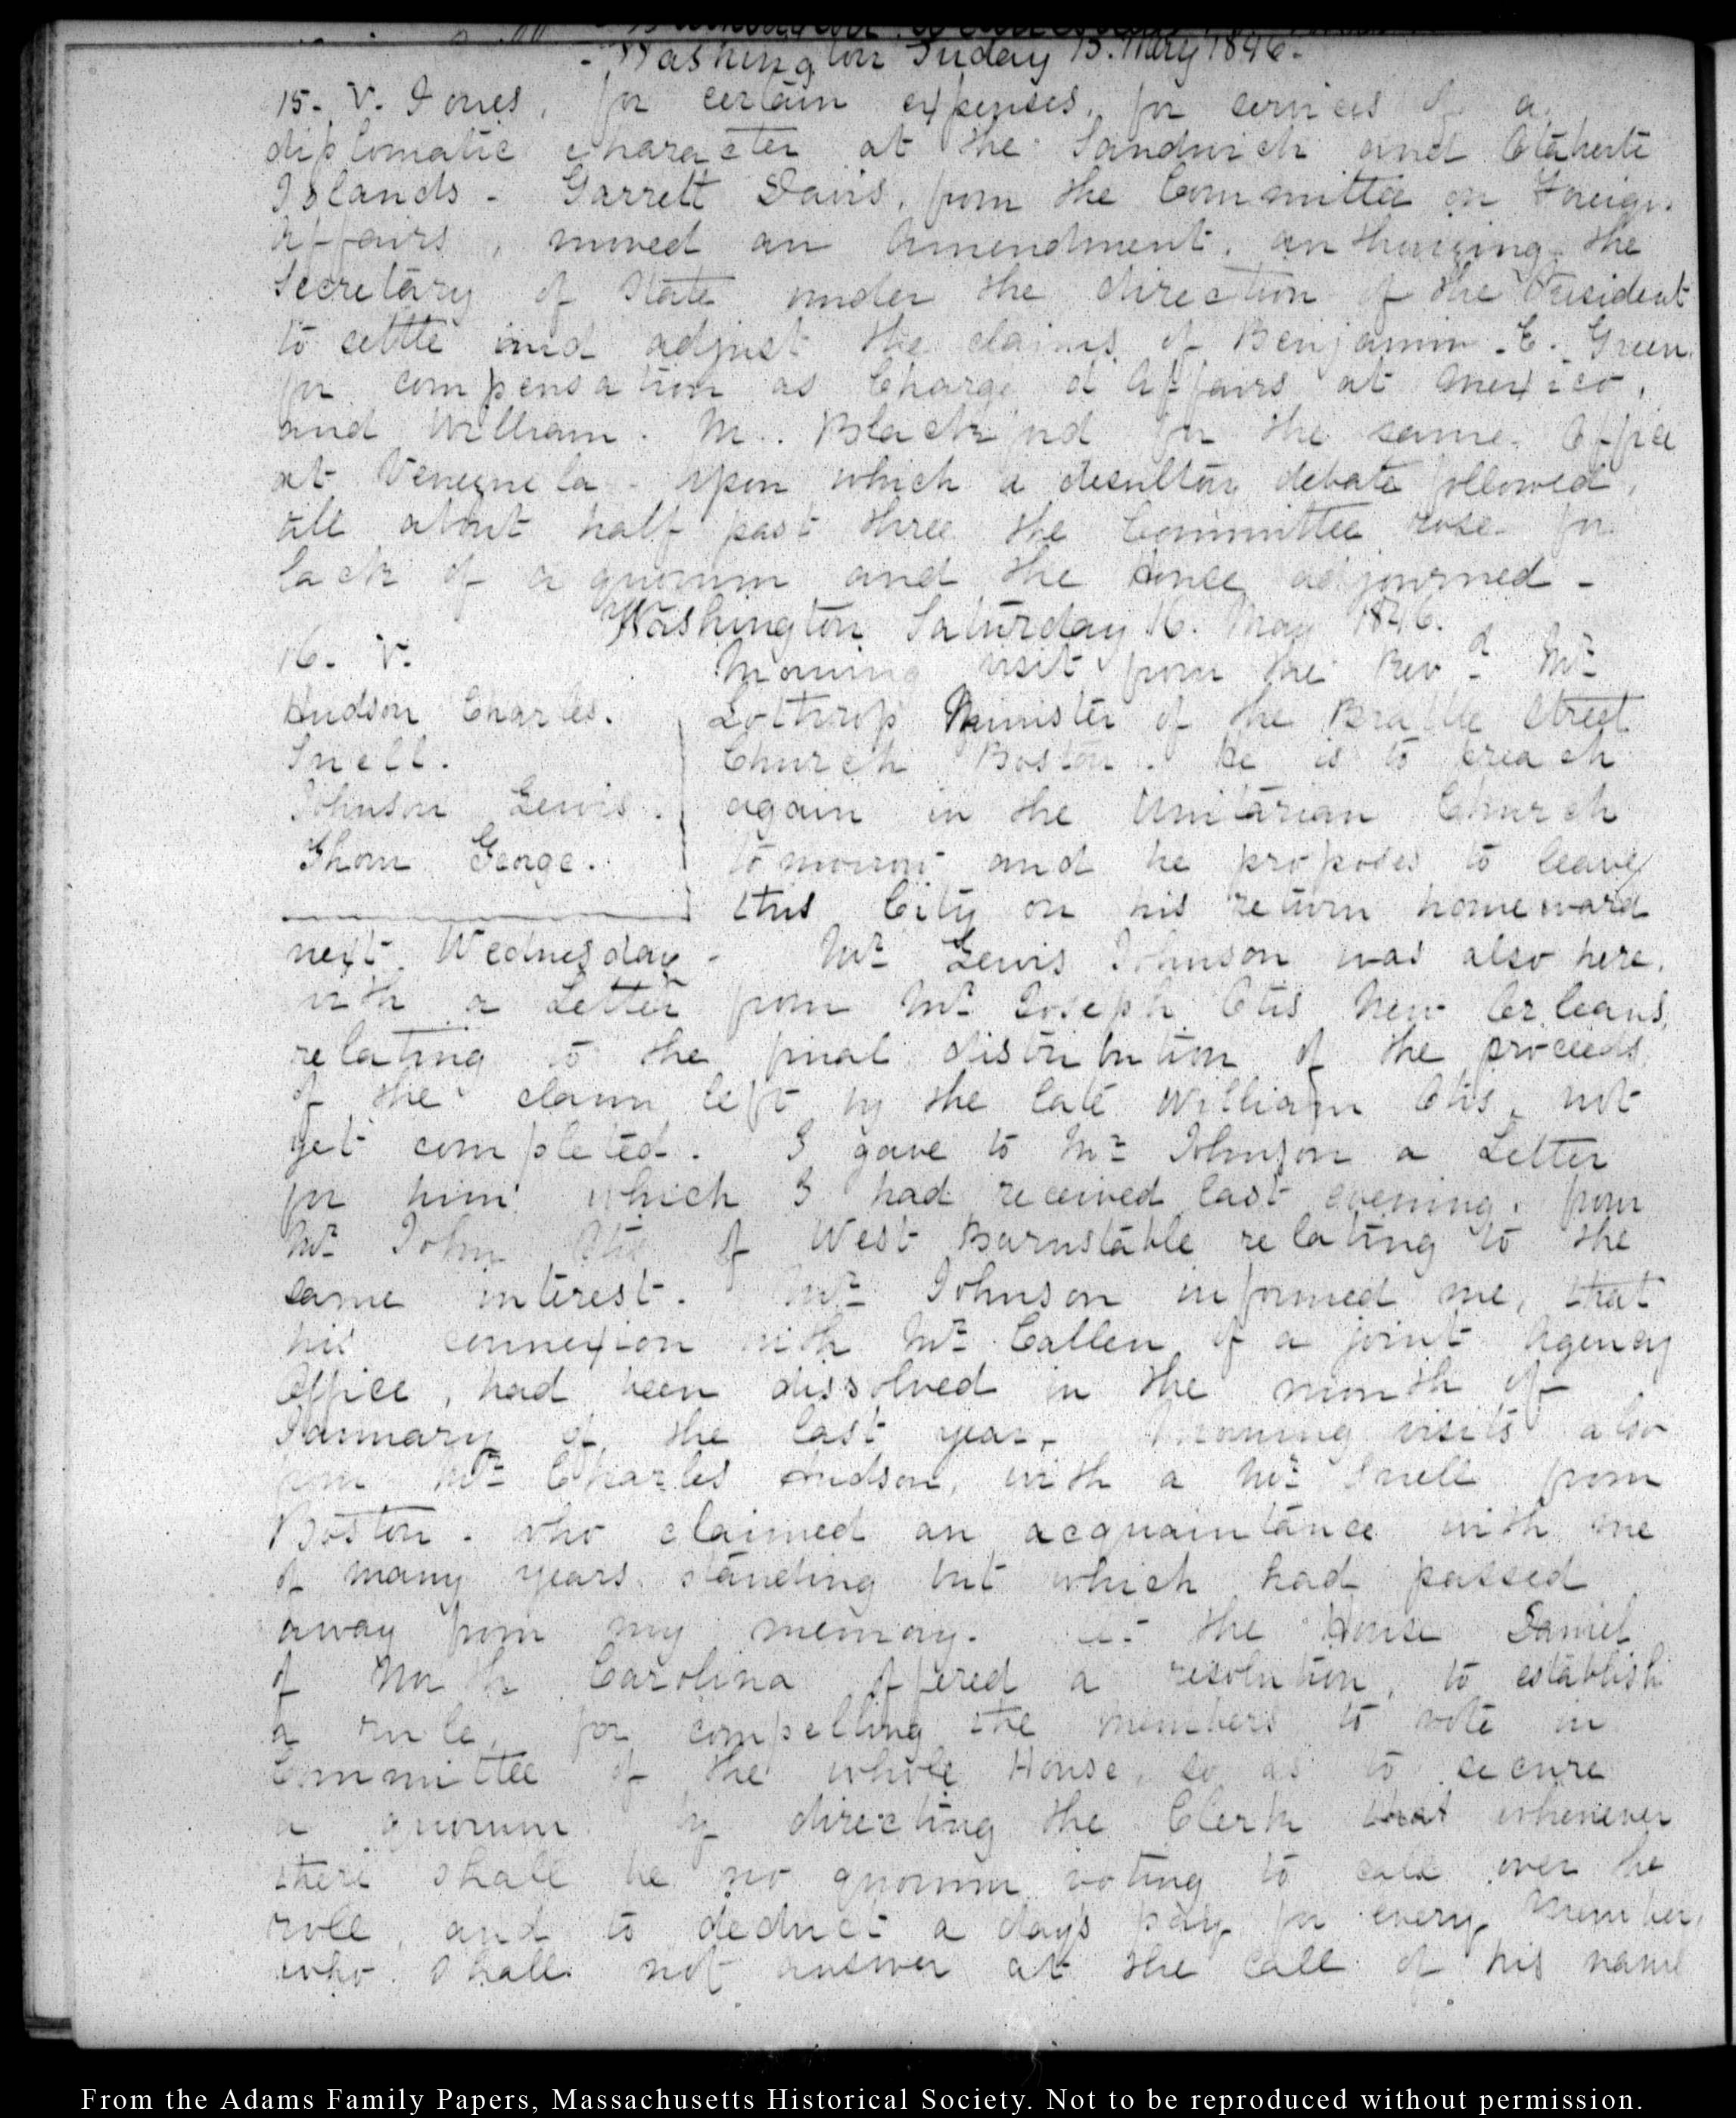 Washington Friday 15. May 1846.
15. V. Jones, for certain expenses, for services of a
diplomatic character at the Sandwich and Otaheite
Islands - Garrett Davis, from the Committee on Foreign
Affairs, moved an Amendment, authorizing the
Secretary of State under the direction of the President
to settle and adjust the claims of Benjamin E. Green
for compensation as Chargé d'Affairs at Mexico,
and William M. Blackford for the same Office
at Venezuela - Upon which a desultory debate followed,
till about half past three the Committee rose for
lack of a quorum and the House adjourned -
Washington Saturday 16. May 1846.
16. V.
Hudson Charles.
Snell.
Johnson Lewis.
Thom George.
Morning visit from the Revd. Mr
Lothrop Minister of the Brattle Street
Church Boston. He is to preach
again in the Unitarian Church
tomorrow and he proposes to leave
this City on his return homeward
next Wednesday - Mr Lewis Johnson was also here,
with a Letter from Mr Joseph Otis New Orleans,
relating to the final distribution of the proceeds
of the claim left by the late William Otis, not
yet completed. I gave to Mr Johnson a Letter
for him which I had received last evening, from
Mr John Otis of West Barnstable relating to the
same interest. Mr Johnson informed me, that
his connexion with Mr Callen of a joint Agency
Office, had been dissolved in the month of
January of the last year. Morning visits also
from Mr Charles Hudson, with a Mr Snell from
Boston - who claimed an acquaintance with me
of many years standing but which had passed
away from my memory. At the House Daniel
of North Carolina offered a resolution, to establish
a rule, for compelling the members to vote in
Committee of the whole House, so as to secure
a quorum by directing the Clerk that whenever
there shall be no quorum voting to call over the
roll, and to deduct a day's pay for every Member,
who shall not answer at the call of his name
From the Adams Family Papers, Massachusetts Historical Society. Not to be reproduced without permission.